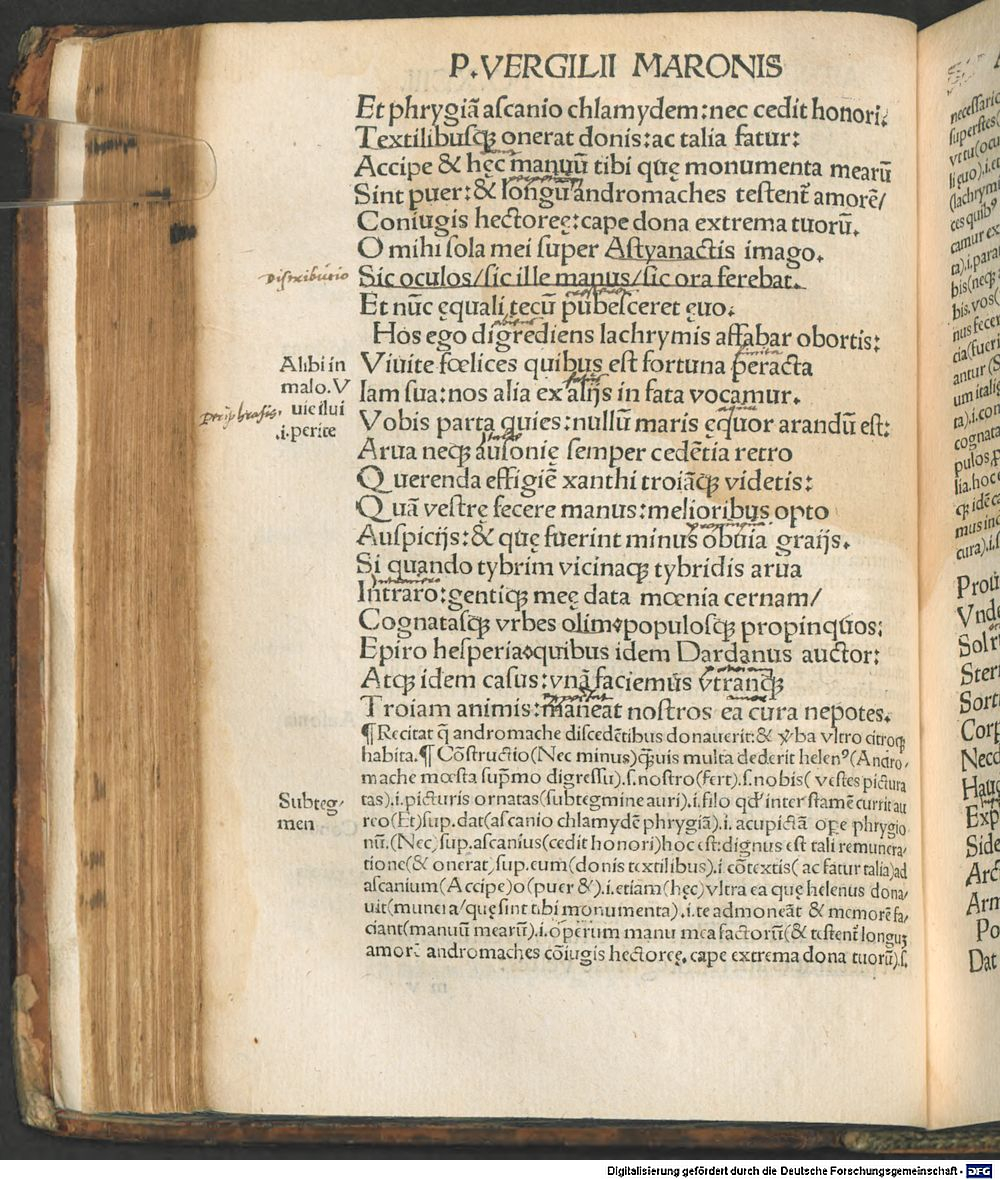 P. VERGILII MARONIS
Et phrygiã ascanio chlamydem: nec cedit honori:
Textilibusqꝫ onerat donis: ac talia fatur:
Accipe & hęc manuũ tibi quę monumenta mearũ
Sint puer: & longũ andromaches testent᷑ amorẽ/
Coniugis hectoreę: cape dona extrema tuorũ.
O mihi sola mei super Astyanactis imago.
Distributio
Sic oculos/sic ille manus/sic ora ferebat.
Et nũc ęquali tecũ pubesceret ęuo.
abiens
Hos ego digrediens lachrymis affabar obortis:
finita
Alibi in
Viuite fœlices quibus est fortuna peracta
fatis
malo. V
Iam sua: nos alia ex alijs in fata vocamur.
aqua
uie ilui
periphrasis.
Vobis parta quies: nullũ maris ęquor arandũ est:
.i. perite
Arua neqꝫ ausonię semper cedẽtia retro
Querenda effigiẽ xanthi troiãqꝫ videtis:
Quã vestrę fecere manus: melioribus opto
propinqua
Auspicijs: & quę fuerint minus obuia graijs.
Si quando tybrim vicinaqꝫ tybridis arua
Intrauero
Intraro: gentiqꝫ meę data mœnia cernam/
Cognatasqꝫ vrbes olim: populosqꝫ propinquos:
Epiro hesperia: quibus idem Dardanus auctor:
Atqꝫ idem casus: vnã faciemus vtranqꝫ
Troiam animis: maneat nostros ea cura nepotes.
¶ Recitat q̃ andromache discedẽtibus donauerit: & ꝟba vltro citroqꝫ
habita. ¶ Cõstructio (Nec minus) q̃uis multa dederit helenꝰ (Andro-
mache mœsta sup̃mo digressu) .s. nostro (fert) .s. nobis (vestes pictura
Subteg-
tas) .i. picturis ornatas (subtegmine auri) .i. filo qd̓ inter stamẽ currit au
men
reo (Et) sup. dat (ascanio chlamydẽ phrygiã) .i. acupictã ope phrygio
nũ. (Nec) sup. ascanius (cedit honori) hoc est: dignus est tali remunera-
tione (& onerat) sup. eum (donis textilibus) .i cõtextis (ac fatur talia) ad
ascanium (Accipe) o (puer &) .i. etiam (hęc) vltra ea quę helenus dona-
uit (munera/quę sint tibi monumenta) .i. te admoneãt & memorẽ fa-
ciant (manuũ mearũ) .i. operum manu mea factorũ (& testent᷑ longuꝫ
amorẽ andromaches cõiugis hectoreę. cape extrema dona tuorũ) .s.
Digitalisierung gefördert durch die Deutsche Forschungsgemeinschaft - DFG